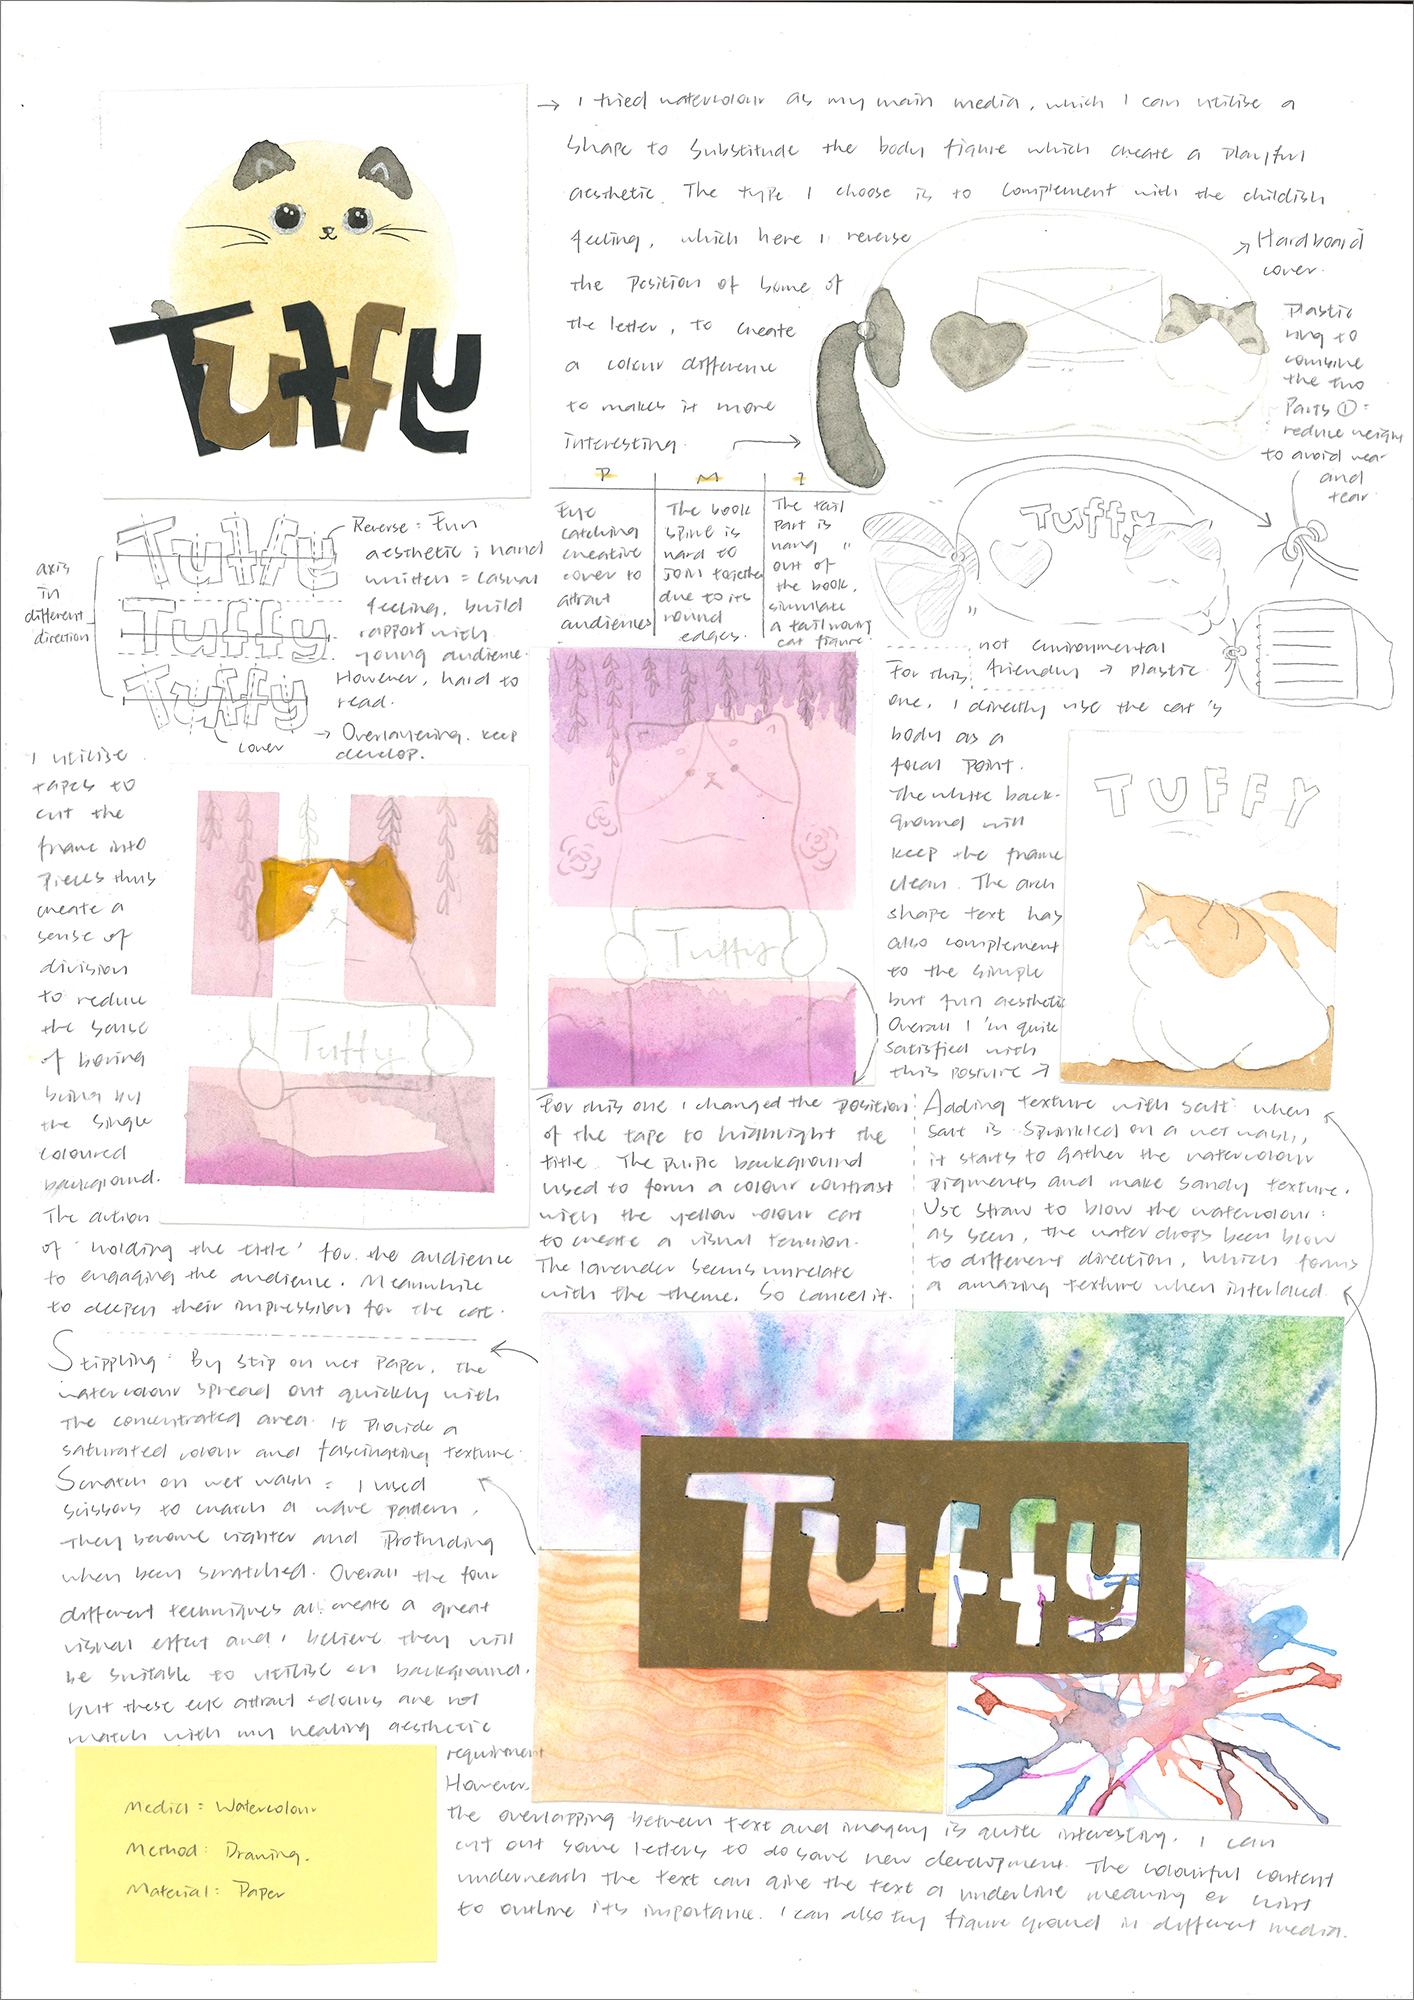 Tuffy
→ I tried watercolour as my main media, which I can utilise a
shape to substitude the body figure which create a playful
aesthetic. The type I choose is to complement with the childish
feeling, which here I reverse
the position of some of
the letter, to create
a colour difference
to makes it more
interesting.
Hardboard
cover.
Plastic
ring to
combine
the two
Parts ① :
reduce weight
to avoid wear
and
tear
P
Eye
catching
creative
cover to
attrat
audiences
M
The book
spine is
hard to
join together
due to its
round
edges.
I
The tail
part is
hang "
out of
the book,
simulate
a tail
cat figure.
Tuffy
axis
in
different
direction
Tuffy
Tuffy
Tuffy
cover
Reverse = Fun
aesthetic ; hand
written = casual
feeling, build
rapport with
young audience.
However, hard to
read.
→ Overlayering. keep
develop.
not environmental
friendly → plastic.
For this
one, I directly use the cat's
body as a
focal point.
The white back-
ground will
keep the frame
clean. The arch
shape text has
also complement
to the simple
but fun aesthetic
Overall I'm quite
satisfied with
this posture →
TUFFY
I utilise
tapes to
cut the
frame into
pieces thus
create a
sense of
division
to reduce
the sense
of boring
being by
the single
coloured
background.
The action
of 'holding the title' for the audience
to engaging the audience. Meanwhile
to deepen their impression for the cat.
Tuffy
Tuffy
For this one I changed the position
of the tape to highlight the
title. The purple background
used to form a colour contrast
with the yellow colour cat
to create a visual tension.
The lavender seems unrelate
with the theme. So cancel it.
Adding texture with salt: when
salt is sprinkled on a wet wash,
it starts to gather the watercolour
pigments and make sandy texture.
Use straw to blow the watercolour:
as seen, the water drops been blow
to different direction, which forms
a amazing texture when interlaced.
Stippling: By stip on wet paper, the
watercolour spread out quickly with
the concentrated area. It provide a
saturated colour and fascinating texture.
Scratch on wet wash = I used
scissors to scratch a wave pattern,
they become lighter and protruding
when been scratched. Overall the four
different techniques all create a great
visual effect and I believe they will
be suitable to utilise on background.
but these eye attract colours are not
match with my healing aesthetic
requirment
However,
the overlapping between text and imagery is quite interesting. I can
cut out some letters to do some new development. The colourful content
underneath the text can give the text a underline meaning or hint
to outline its importance. I can also try figure ground in different media.
Tuffy
Media: Watercolour
Method: Drawing.
Material: Paper